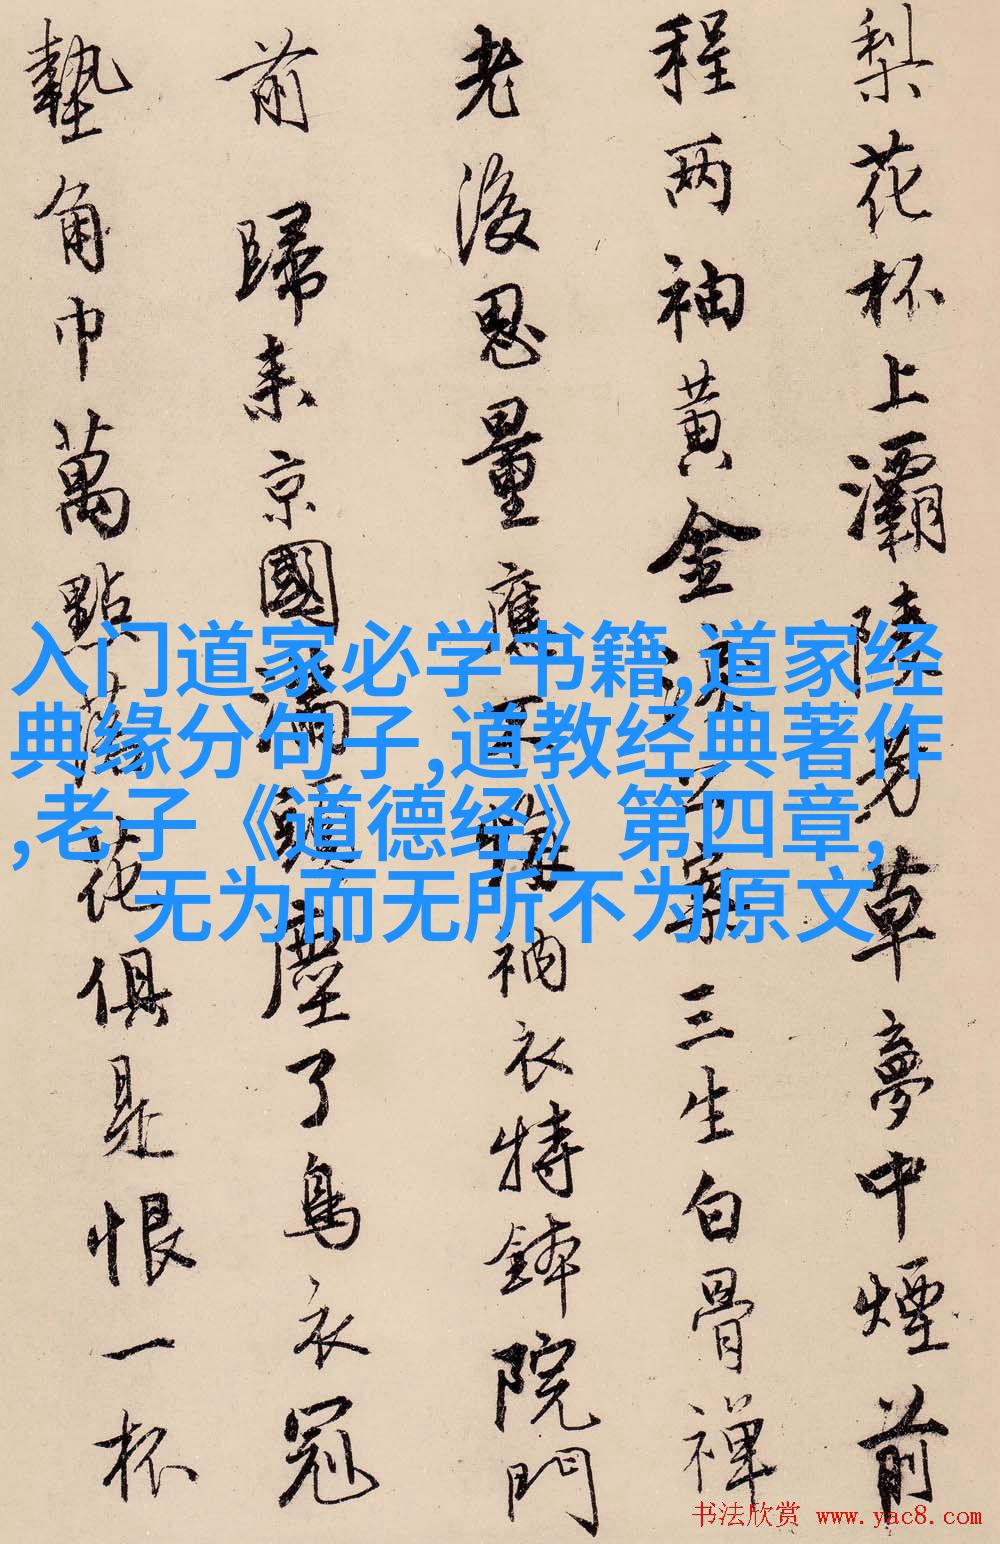 梨花杯上灞陵芳草夢中煙前
程两袖黄金淚公案三生白骨禅
老後思量應不悔衲衣持鉢院門
前 歸来京國滿頭塵了烏衣冠
墊角巾萬點落花俱是恨一杯
入门道家必学书籍,道家经
典缘分句子,道教经典著作
,老子《道德经》第四章,
无为而无所不为原文
书法欣赏 www.yac8.com